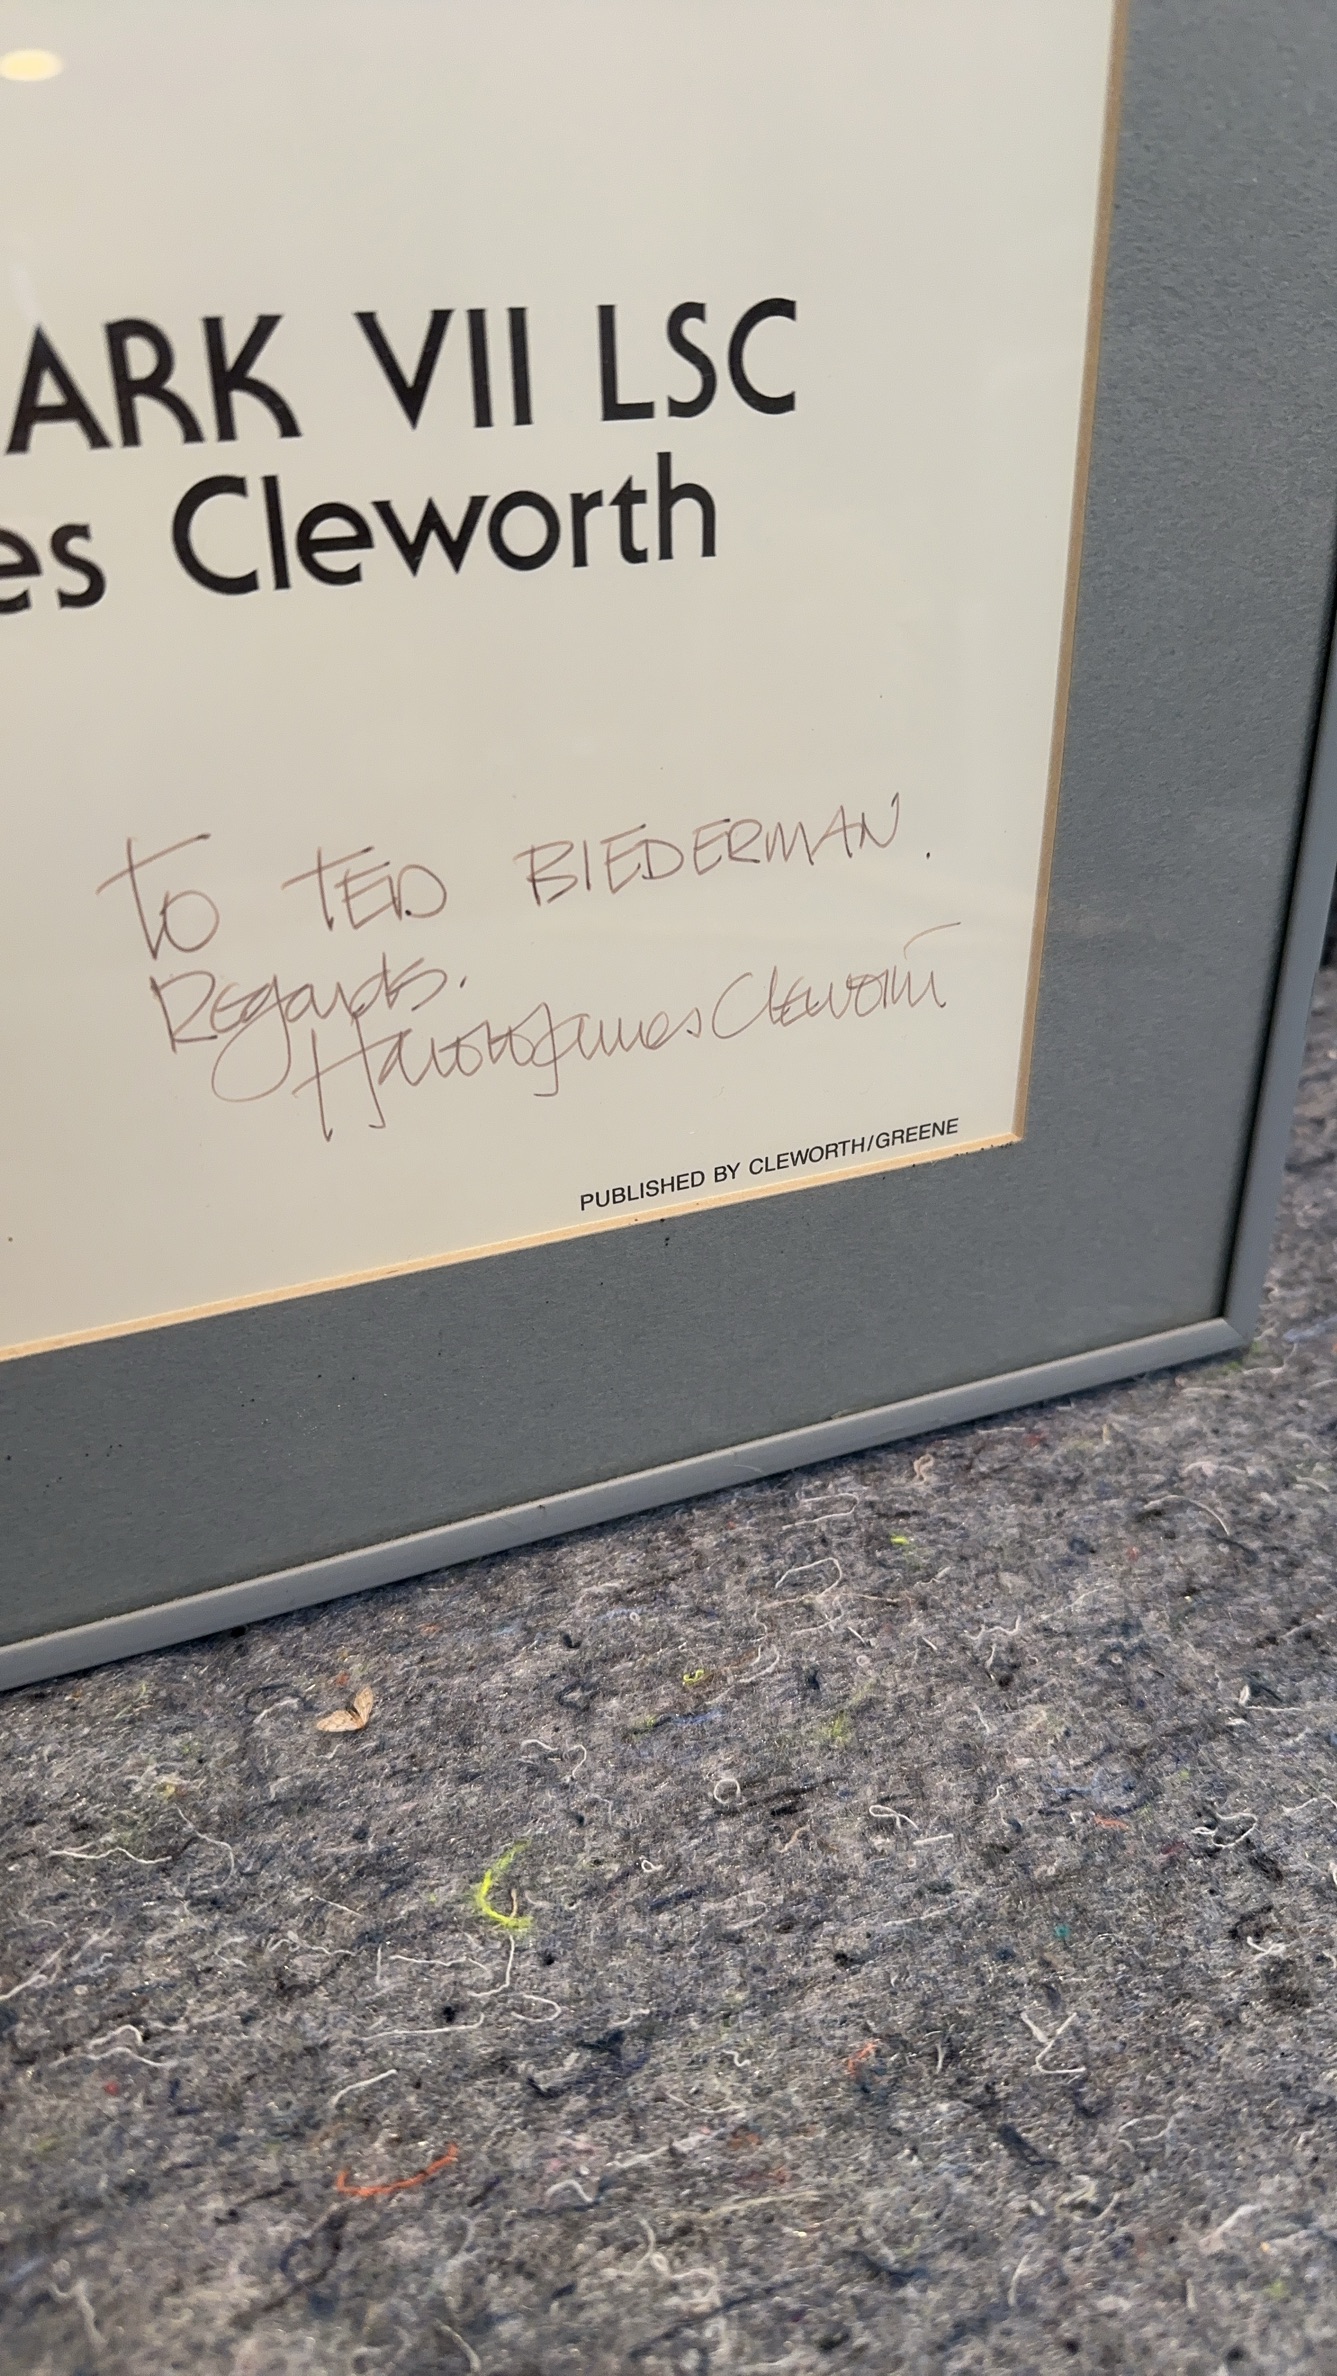 ARK VII LSC
es Cleworth
To TED BIEDERMAN.
Regards.
Harold James Cleworth
PUBLISHED BY CLEWORTH/GREENE